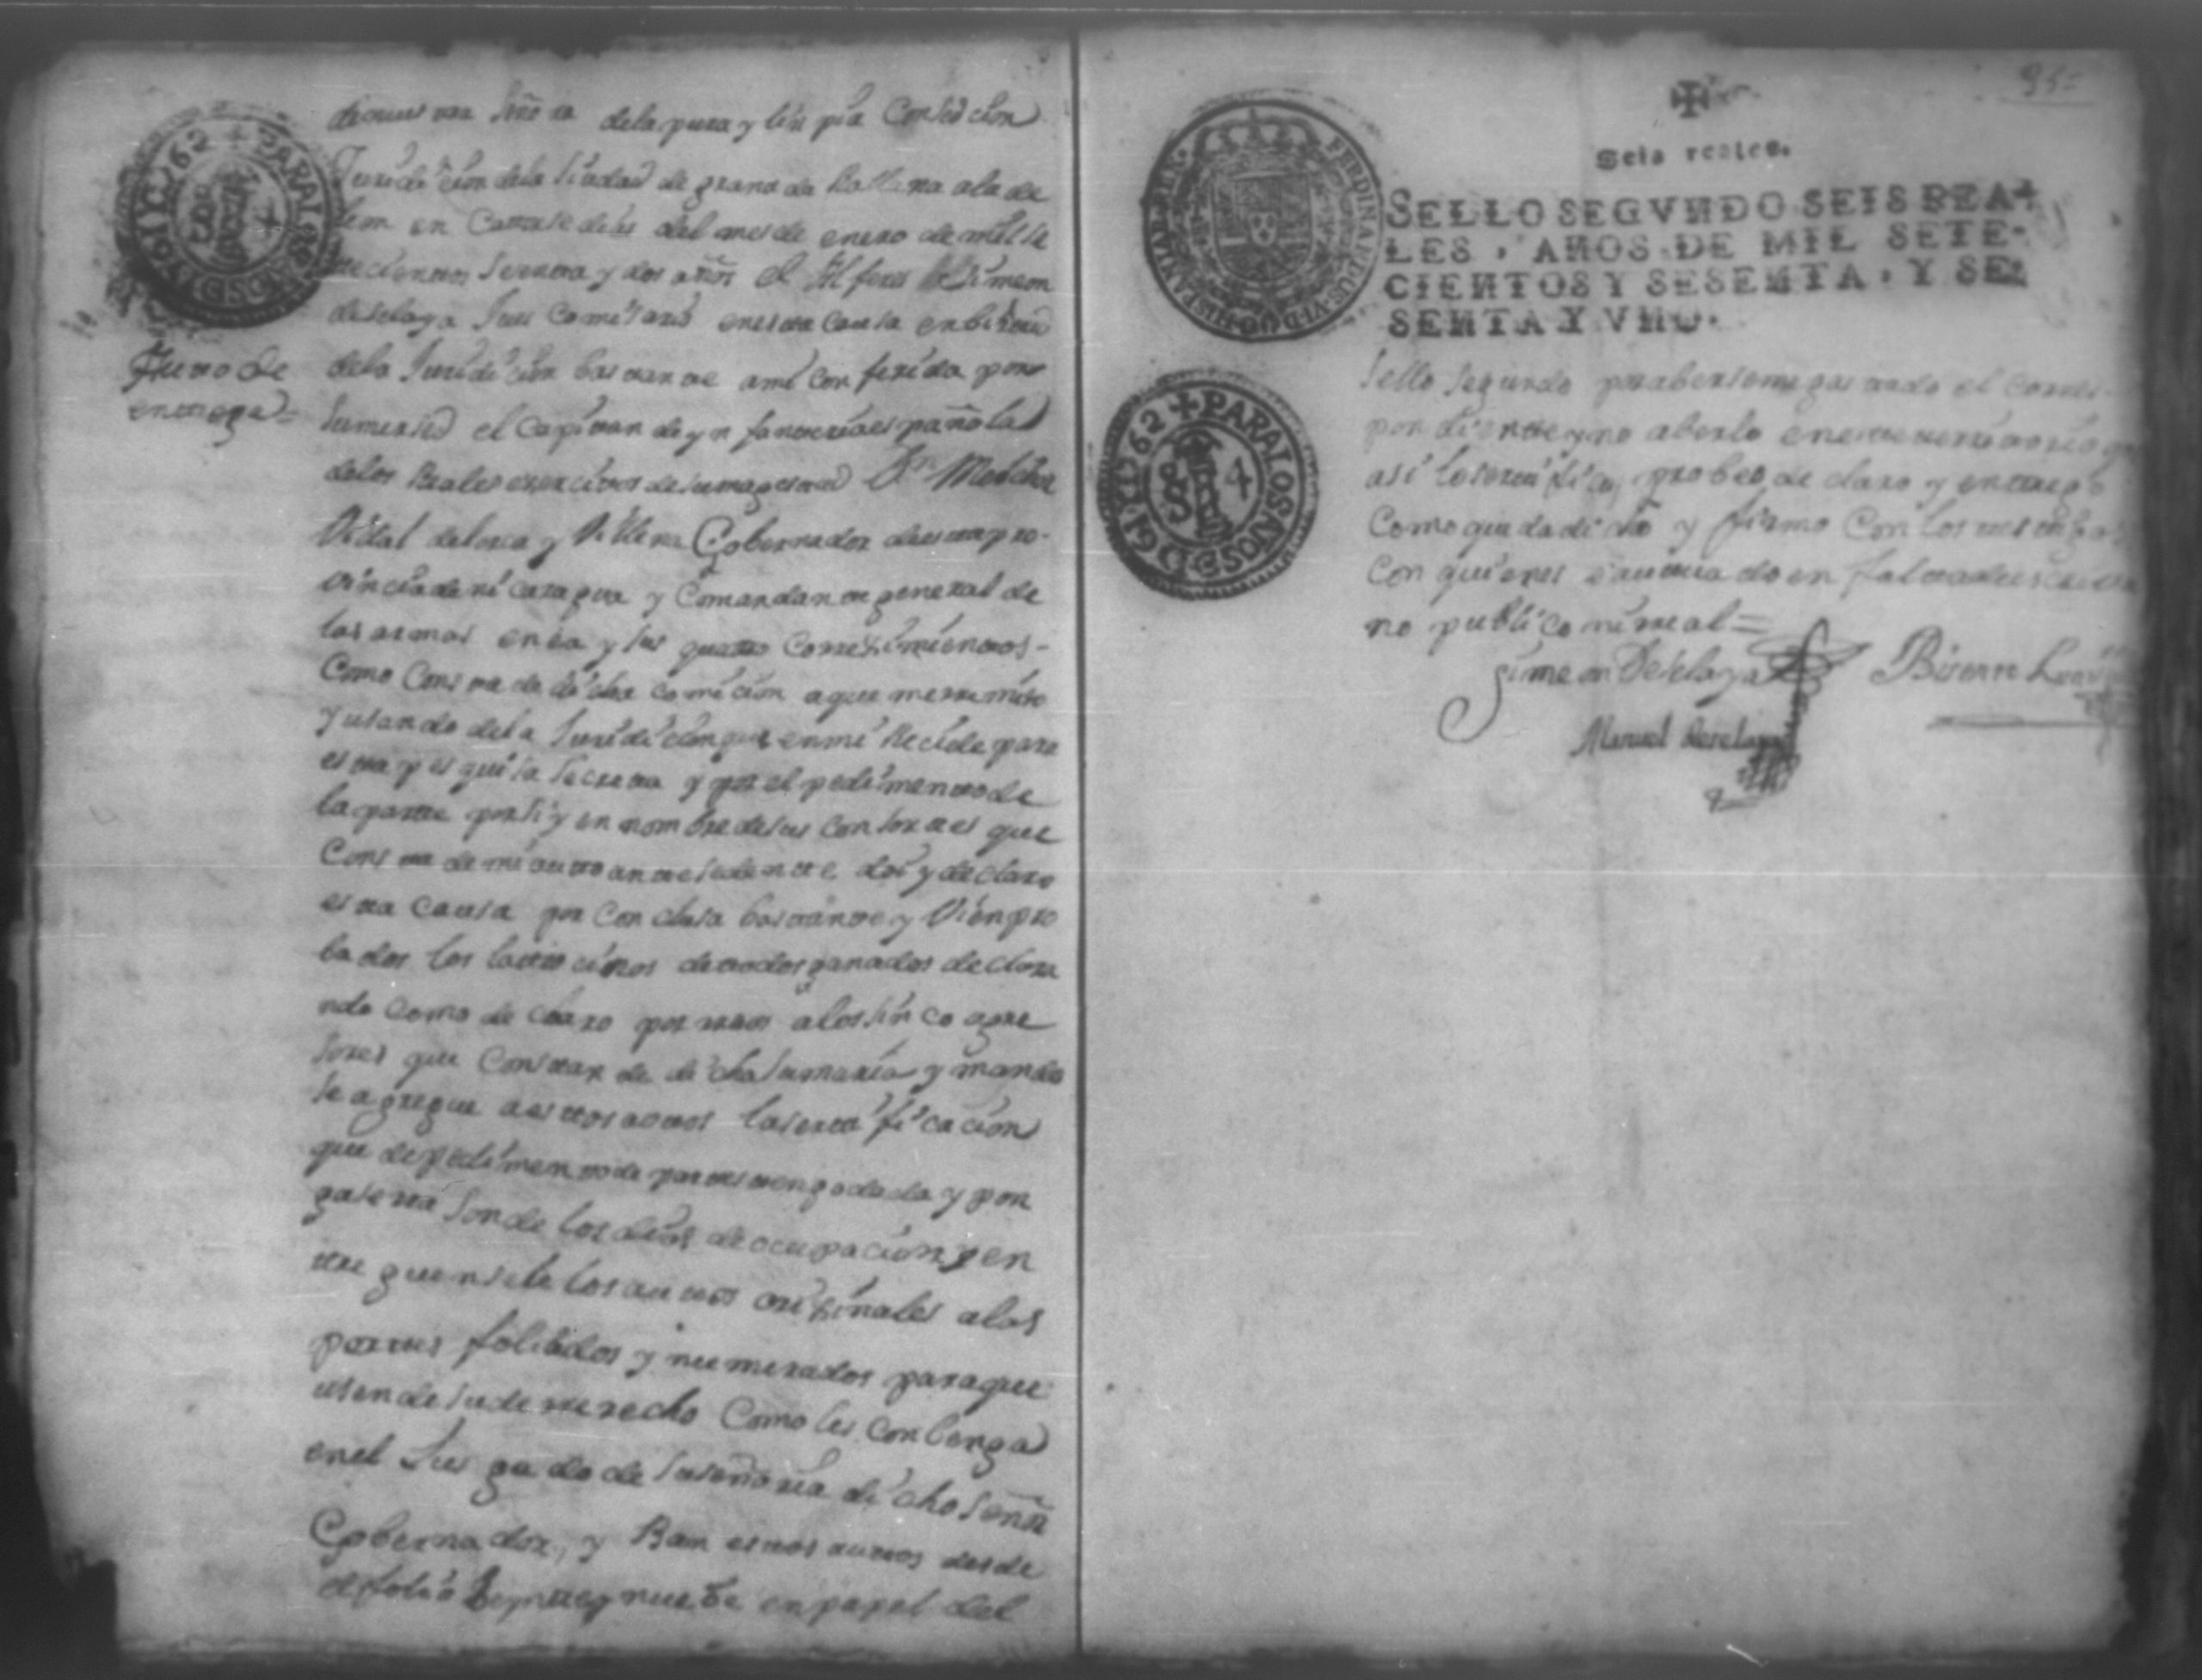 de nuestra señora dela pura y linpia Consedcion
Juridicion dela Siudad de granada
en Catorse dias del mes de enero de mill se
tecientos sesenta y dos años el Alferes Simeon
deselaya Jues Comisario en esta Causa en birtud
dela Juridicion bastante ami conferida por
sumersed el Capitan de ynfanteria española
delos Reales exercitos desumagestad Dn Melchor
Vidal delorca y Villena Gobernador desta pro-
vincia de nicaragua y Comandante general de
las armas en ea y sus quatro Correximientos-
Como Consta de dicha comicion aque meremito
y usando dela Juridicion que enmi Recide para
esta pesquisa secreta y por el pedimento de
la parte porsi y en nombre desus consortes que
Consta de mi auto antesedente doi y declaro
esta causa por conclusa bastante y vien pro
bados los latrocinios detodos ganados declara
ndo como declaro por reos alos sinco agre
sores que constan de dicha sumaria y mando
se agregue a estos autos lasertificacion
que de pedimento de partes tengo dada y pon
gase rason de los dias de ocupacion y en
treguensele los autos orixinales alas
partes foliados y numerados para que
usen de su derrerecho Como les conbenga
en el Jusgado de suseñoria dicho señor
Gobernador, y Ban estos autos desde
el folio beynte y nuebe en papel del
Auto de
entrega=
PARA LOS AÑOS DE 1761 Y 1762
Seis reales.
SELLO SEGVNDO SEIS REA+
LES, AÑOS DE MIL SETE-
CIENTOS Y SESENTA, Y SE-
SENTA Y VNO.
FERDINANDUS VI D G HISPANIAR REX
PARA LOS AÑOS DE 1761 Y 1762
sello segundo por aberseme gastado el corres-
pondiente y no aberlo en este territorio
asi losertifico, probeo declaro y entrego
Como queda dicho y firmo Con los testigos
con quienes e autuado en falta de escriba
no publico ni real=
Simeon Deselaya
Manuel deselaya